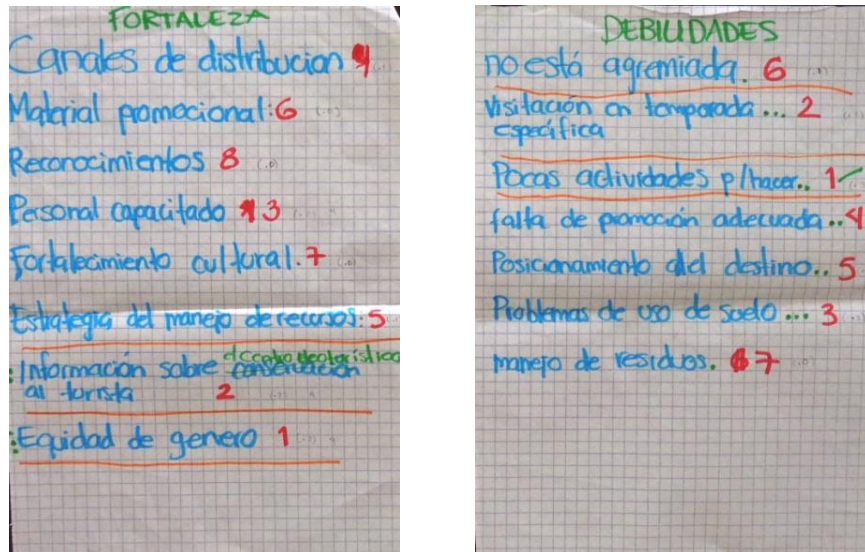 FORTALEZA
Canales de distribucion 4
Material promocional: 6
Reconocimientos 8
Personal capacitado 3
Fortalecimiento cultural. 7
Estrategia del manejo de recursos: 5
Información sobre conservación
al turista 2
Equidad de genero 1
DEBILIDADES
no está agremiada. 6
visitación en temporada... 2
específica
Pocas actividades p/hacer.. 1
falta de promoción adecuada.. 4
Posicionamiento del destino.. 5
Problemas de uso de suelo... 3
manejo de residuos. 7